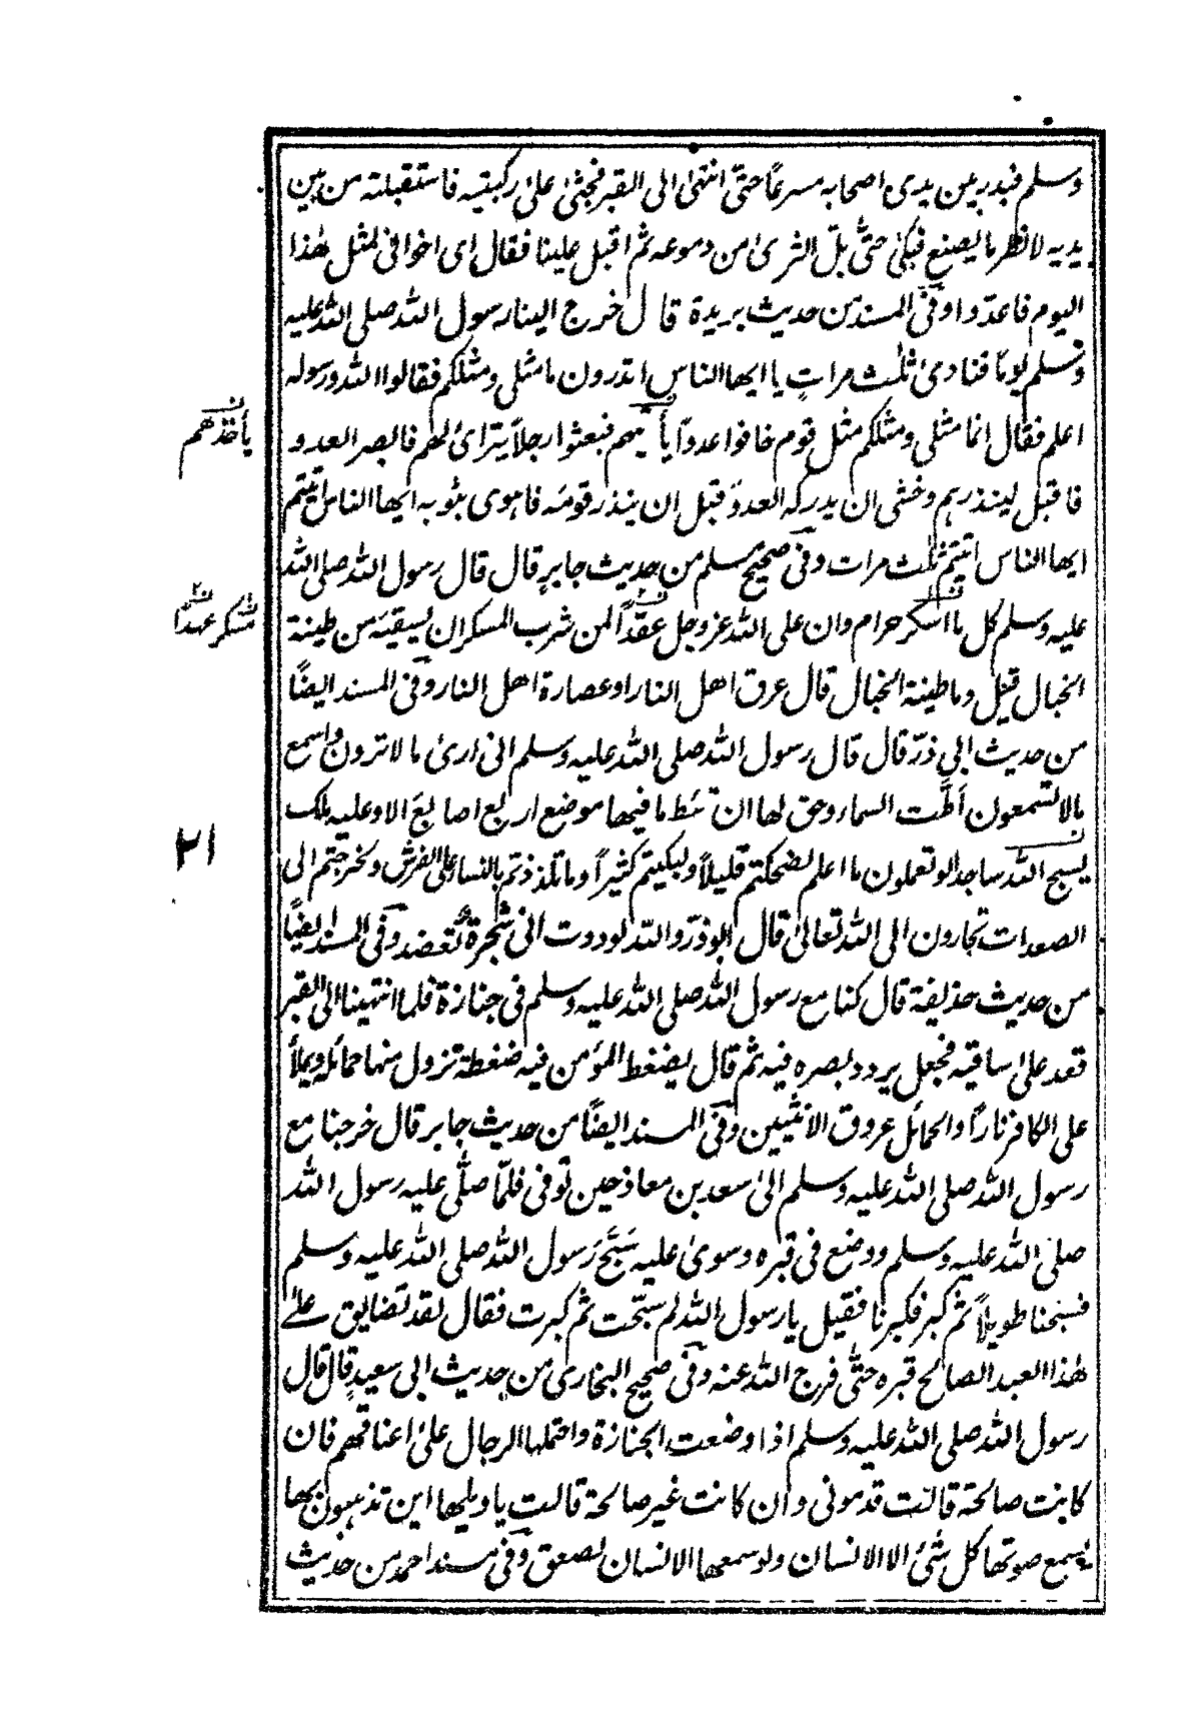 وسلم فبدر بين يدى اصحابه مسرعًا حتى انتهى الى القبر فجثىٰ علىٰ ركبتيه فاستقبلته من بين
يديه لانظر ما يصنع فبكىٰ حتى بلّ الثرىٰ من دموعه ثم اقبل علينا فقال اى اخوانى لمثل هٰذا
اليوم فاعدّوا وفى المسند من حديث بريدة قال خرج الينا رسول الله صلى الله عليه
وسلم يومًا فنادىٰ ثلٰث مراتٍ يا ايها الناس اتدرون ما مثلى ومثلكم فقالوا الله ورسوله
اعلم فقال انما مثلى ومثلكم مثل قوم خافوا عدوّا يأتيهم فبعثوا رجلاً يترائ لهم فابصر العدو
فاقبل لينذرهم وخشى ان يدركه العدوّ قبل ان ينذر قومه فاهوى بثوبه ايها الناس اتيتم
ايها الناس اتيتم ثلٰث مرات وفى صحيح مسلم من حديث جابرٍ قال قال رسول الله صلى الله
عليه وسلم كل ما اسكر حرام وان على الله عزوجل عقدًا لمن شرب المسكران يسقيه من طينة
الخبال قيل وما طينة الخبال قال عرق اهل النار اوعصارة اهل النار وفى المسند ايضًا
من حديث ابى ذرّ قال قال رسول الله صلى الله عليه وسلم انى ارىٰ مالا ترون واسمع
مالا تسمعون اَطّت السماء وحق لها ان تَئط ما فيها موضع اربع اصابعَ الا وعليه ملك
يسبح الله ساجدا لو تعلمون ما اعلم لضحكتم قليلاً ولبكيتم كثيراً وما تلذذتم بالنساء على الفرش ولخرجتم الى
الصعدات تجارون الى الله تعالىٰ قال ابوذرّ والله لوددت انى شجرة تُعضد وفى المسند ايضًا
من حديث حذيفة قال كنا مع رسول الله صلى الله عليه وسلم فى جنازة فلما انتهينا الى القبر
قعد علىٰ ساقيه فجعل يردد بصره فيه ثم قال يضغط المؤمن فيه ضغطة تزول منها حمائله ويملأ
على الكافر ناراً والحمائل عروق الانثيين وفى المسند ايضًا من حديث جابر قال خرجنا مع
رسول الله صلى الله عليه وسلم الىٰ سعد بن معاذ حين توفى فلمّا صلّى عليه رسول الله
صلى الله عليه وسلم ووضع فى قبره وسوىٰ عليه سَبَّحَ رسول الله صلى الله عليه وسلم
فسبحنا طويلاً ثم كبر فكبرنا فقيل يا رسول الله لم سبّحت ثم كبرت فقال لقد تضايق علے
هٰذا العبد الصالح قبره حتّٰى فرج الله عنه وفى صحيح البخارى من حديث ابى سعيدٍ قال قال
رسول الله صلى الله عليه وسلم اذا وضعت الجنازة واحتملها الرجال علىٰ اعناقهم فان
كانت صالحة قالت قدمونى وان كانت غير صالحة قالت يا ويلها اين تذهبون بها
يسمع صوتها كل شئ الا الانسان ولو سمعها الانسان لصعق وفى مسند احمد من حديث
يأخذهم
مسكر عهدًا
٢١